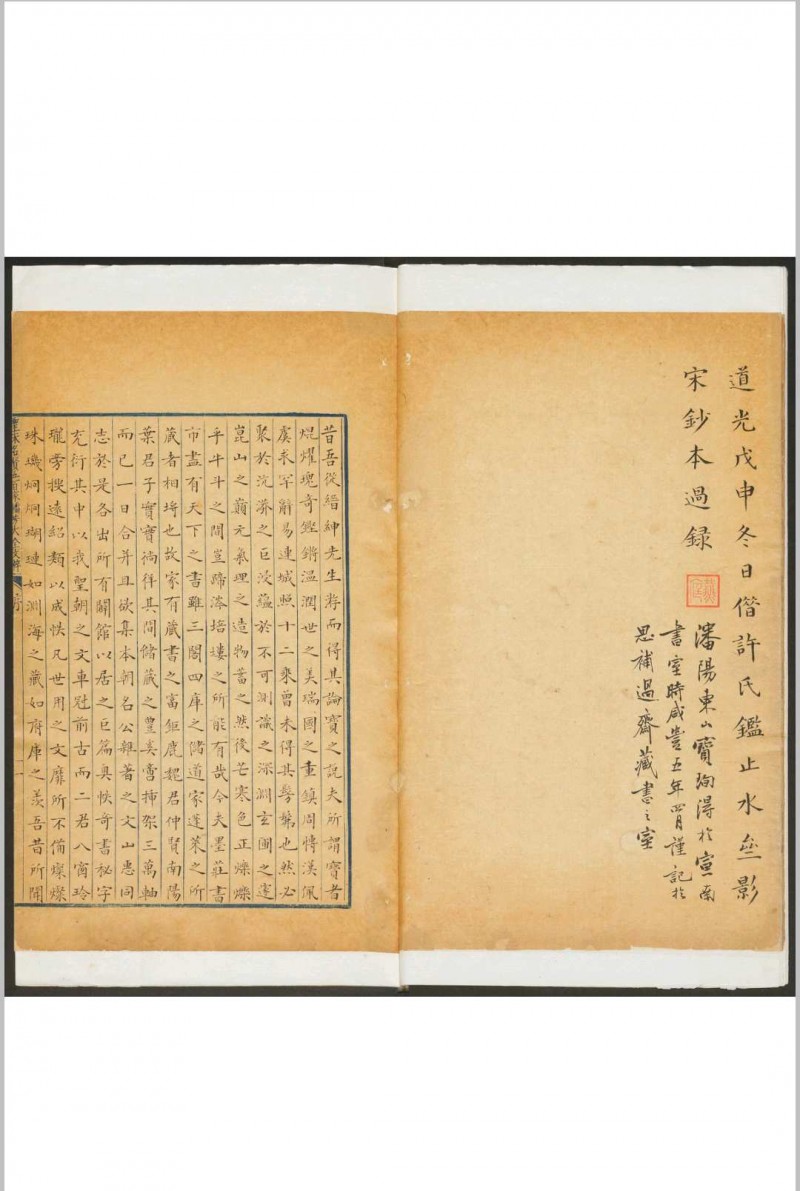 道光戊申冬日偕許氏鑑止水齋影
宋鈔本過録
瀋陽東山寶珣得於宣南
書室時咸豐五年四月謹記於
思補過齋藏書之室
昔吾從縉紳先生游而得其論寶之說夫所謂寶者
焜燿瑰奇鏗鏘溫潤世之美瑞國之重鎮周愽漢佩
虞求罕辭易連城照十二乘曾未得其髣髴也然必
聚於沆漭之巨浸蘊於不可測識之深淵玄圃之邃
崑山之巔元氣理之造物蓄之然後芒寒色正爍爍
乎牛斗之間豈蹄涔培塿之所能有哉今夫墨莊書
市盡有天下之書雖三閣四庫之儲道家蓬萊之所
蔵者相埒也故家有蔵書之富鉅鹿魏君仲賢南陽
葉君子實寶徜徉其間儲蔵之豐奚啻挿架三萬軸
而已一日合并且欲集本朝名公雜著之文山悉同
志於是各出所有闢館以居之巨篇奥帙奇書秘字
充衍其中以我聖朝之文車冠前古而二君八窗玲
瓏旁搜遠紹類以成帙凡世用之文靡所不備燦燦
珠璣炯炯瑚璉如淵海之藏如府庫之羡吾昔所聞
序